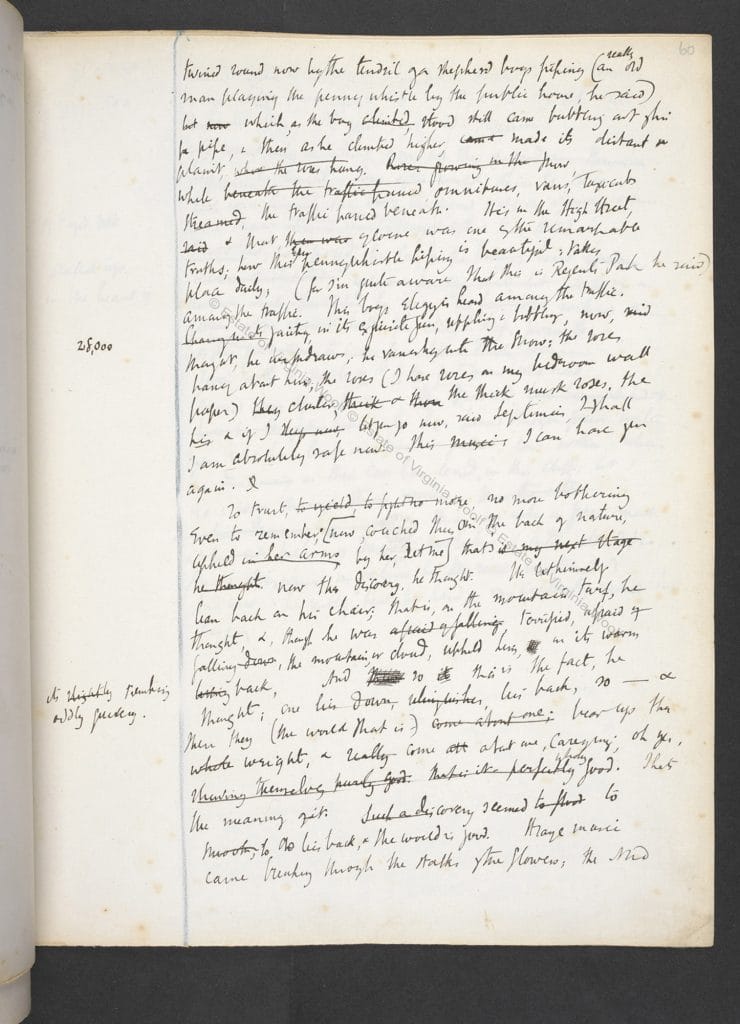 60
twined round now by the tendril of a shepherd boys piping (an really old
man playing the penny whistle by the public house, he said)
but now which, as the boy climbed stood still came bubbling out of his
pipe, & then as he climbed higher, came made its distant
plaint, where the was hung. Roses growing in the snow
while beneath the traffic passed omnibuses, vans, taxicabs
streamed, the traffic passed beneath. It is in the High Street,
said & that, there was of course was one of the remarkable
truths; how this penny whistle piping is beautiful; takes
place daily; (for I'm quite aware that this is Regents Park he said)
among the traffic. This boys Elegy is heard among the traffic.
Changing its gaiety, in its exquisite fun, rippling & bubbling, now, said
thought, he withdraws; he vanishes into the snow; the roses
28,000
hang about him, the roses (I have roses on my bedroom wall
paper) they cluster, thick & the thick musk roses, the
his & if I they now let you go now, said Septimus, I shall
I am absolutely safe now. This music I can have you
again. I
To trust, to yield, to fight no more, no more bothering
Even to remember, [now, couched thus on the back of nature,
upheld in her arms by her, let me] that is my next stage
he thought. now this discovery, he thought. He let himself
lean back on his chair; that is, on the mountain turf, he
thought, &, though he was afraid of falling terrified, afraid of
falling down, the mountain, or cloud, upheld him, in its warm
its slightly trembling
oddly quivery.
back, And so it this is the fact, he
thought; one lies down, relinquishes, lies back, so — &
then they (the world that is) come about one; bear up the
whole weight, & really come all about one, caressing; oh yes,
showing themselves purely good. that is it - perfectly wholly good. That's
the meaning of it. Such a discovery seemed to flood to
smooth, to lie back, & the world is good. Strange music
came breaking through the stalks of the flowers; the
© Estate of Virginia Woolf © Estate of Virginia Woolf © Estate of Virginia Woolf